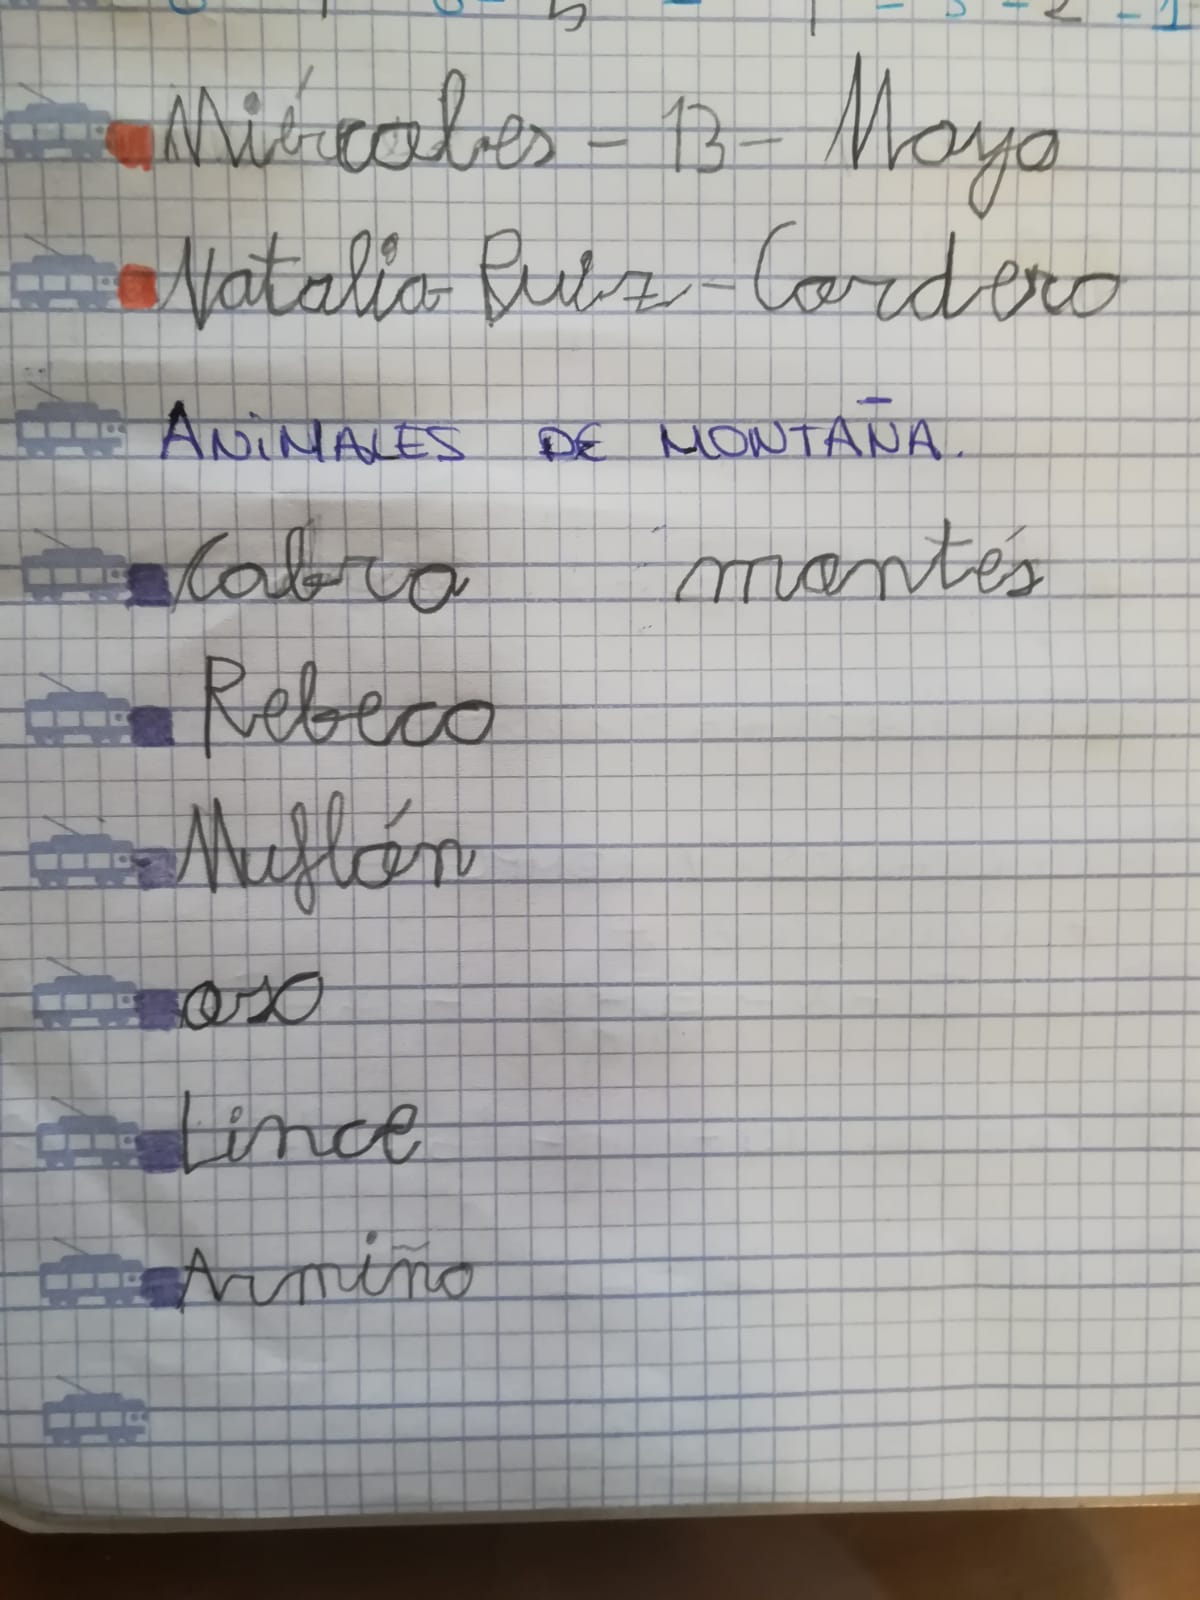 Miércoles - 13 - Mayo
Natalia - Ruiz - Cordero
ANIMALES DE MONTAÑA.
Cabra montés
Rebeco
Muflón
oso
Lince
Armiño